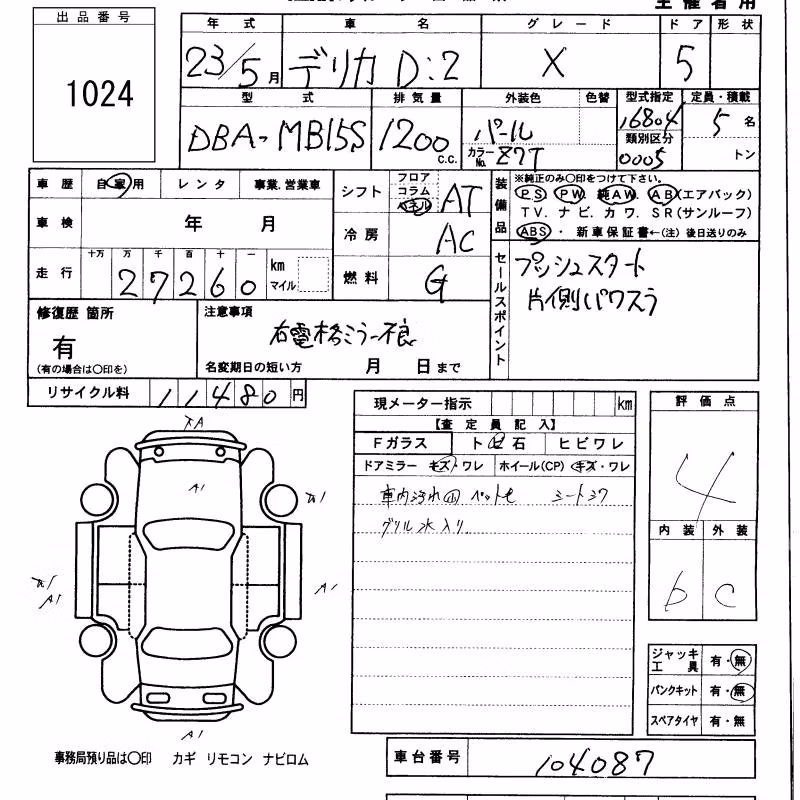 主催者用
出品番号
1024
年式 車名 グレード ドア 形状
23/5月 デリカD:2 X 5
型式 排気量 外装色 色替 型式指定 定員・積載
DBA-MB15S 1200 c.c. パール 16804 5名
類別区分
カラーNo. Z7T 0005 トン
車歴 自家用 レンタ 事業、営業車
車検 年 月
走行 十万 万 千 百 十 一 km マイル
27260
シフト フロア コラム パネル AT
冷房 AC
燃料 G
装備品
※純正のみ〇印をつけて下さい。
PS PW. 純AW. AB(エアバック)
TV. ナビ. カワ. SR(サンルーフ)
ABS・新車保証書←(注) 後日送りのみ
セールスポイント
プッシュスタート
片側パワスラ
修復歴 箇所
有
(有の場合は〇印を)
注意事項
右電格ミラー不良
名変期日の短い方 月 日まで
リサイクル料 11480円
現メーター指示 km
【査定員記入】
Fガラス ト 石 ヒビワレ
ドアミラー キズ・ワレ ホイール(CP) キズ・ワレ
車内汚れ ペット毛 シート
グリル水入り
評価点
4
内装 外装
b c
A1
A1
A1
A1
A1
ジャッキ工具 有・無
パンクキット 有・無
スペアタイヤ 有・無
事務局預り品は〇印 カギ リモコン ナビロム
車台番号 104087